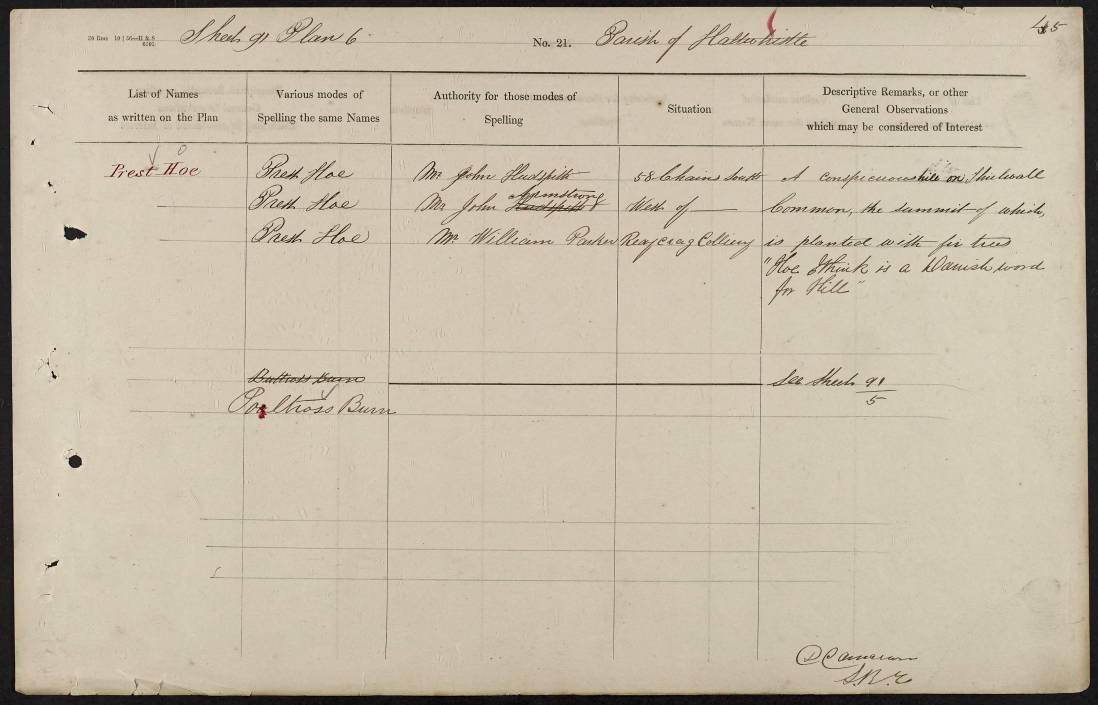 Sheet 91 Plan 6 No. 21. Parish of Haltwhistle 45
List of Names as written on the Plan
Various modes of Spelling the same Names
Authority for those modes of Spelling
Situation
Descriptive Remarks, or other General Observations which may be considered of Interest
Prest Hoe Prest Hoe Mr John Hudspith 58 Chains South A conspicuous hill on Thirlwall
Prest Hoe Mr John Hudspith Armstrong West of Common, the summit of which,
Prest Hoe Mr William Parker Reaycrag Colliery is planted with fir trees
"Hoe I think is a Danish word
for Hill"
Baltross Burn See Sheet 91/5
Poltross Burn
D Cameron
S.R.E